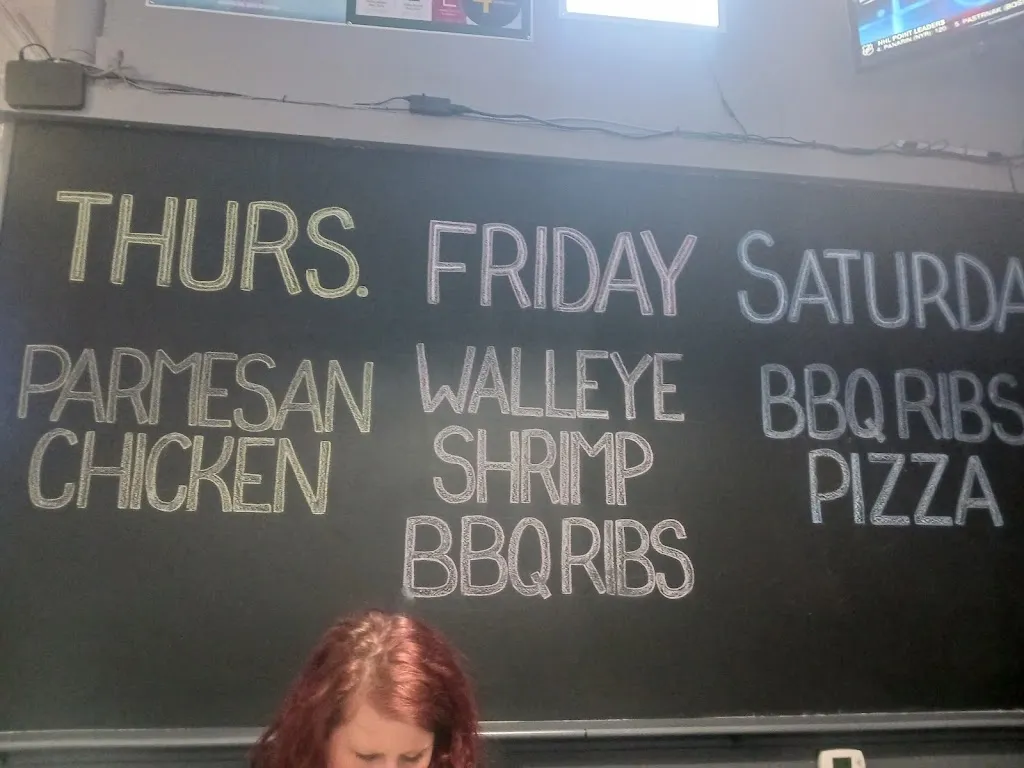 NHL POINT LEADERS
4. PANARIN (NYR) 120
5. PASTRNAK (BOS
THURS.
PARMESAN
CHICKEN
FRIDAY
WALLEYE
SHRIMP
BBQ RIBS
SATURDA
BBQ RIBS
PIZZA